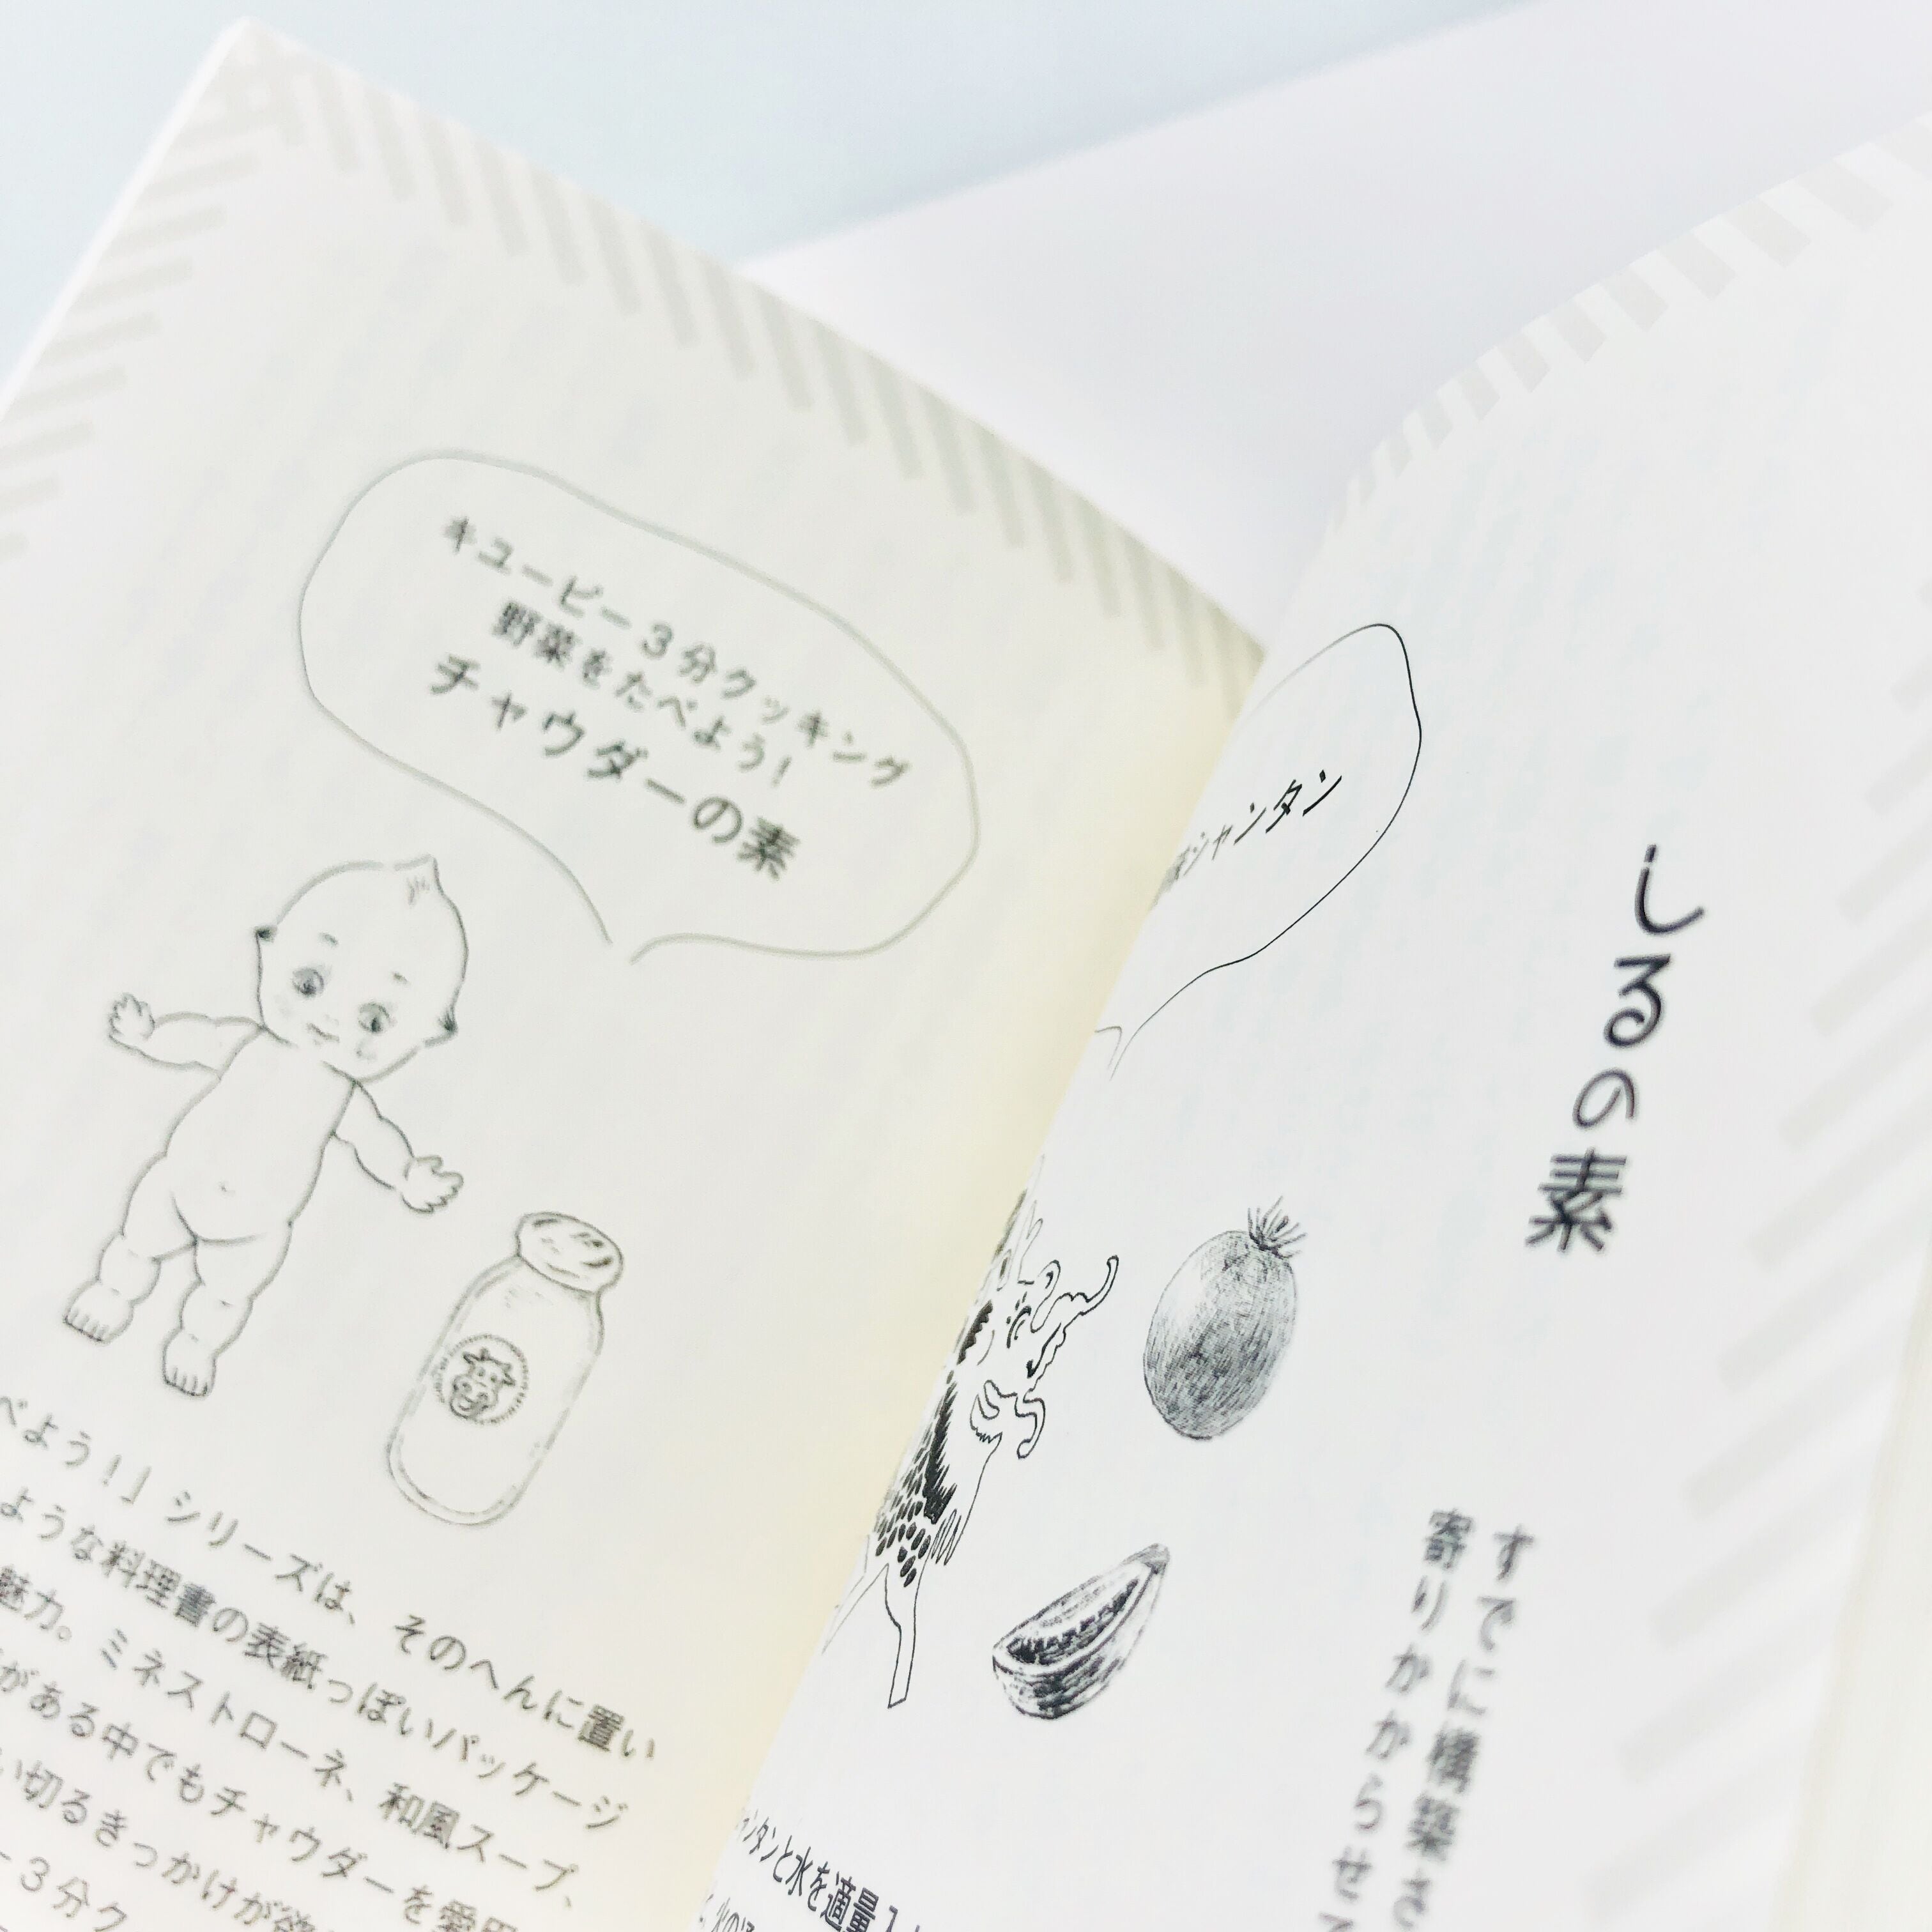 キユーピー3分クッキング
野菜をたべよう!
チャウダーの素
べよう!」シリーズは、そのへんに置い
ような料理書の表紙っぽいパッケージ
魅力。ミネストローネ、和風スープ、
がある中でもチャウダーを愛用
い切るきっかけが欲
ー3分ク
シャンタン
しるの素
すでに構築さ
寄りかからせ
ャンタンと水を適量入